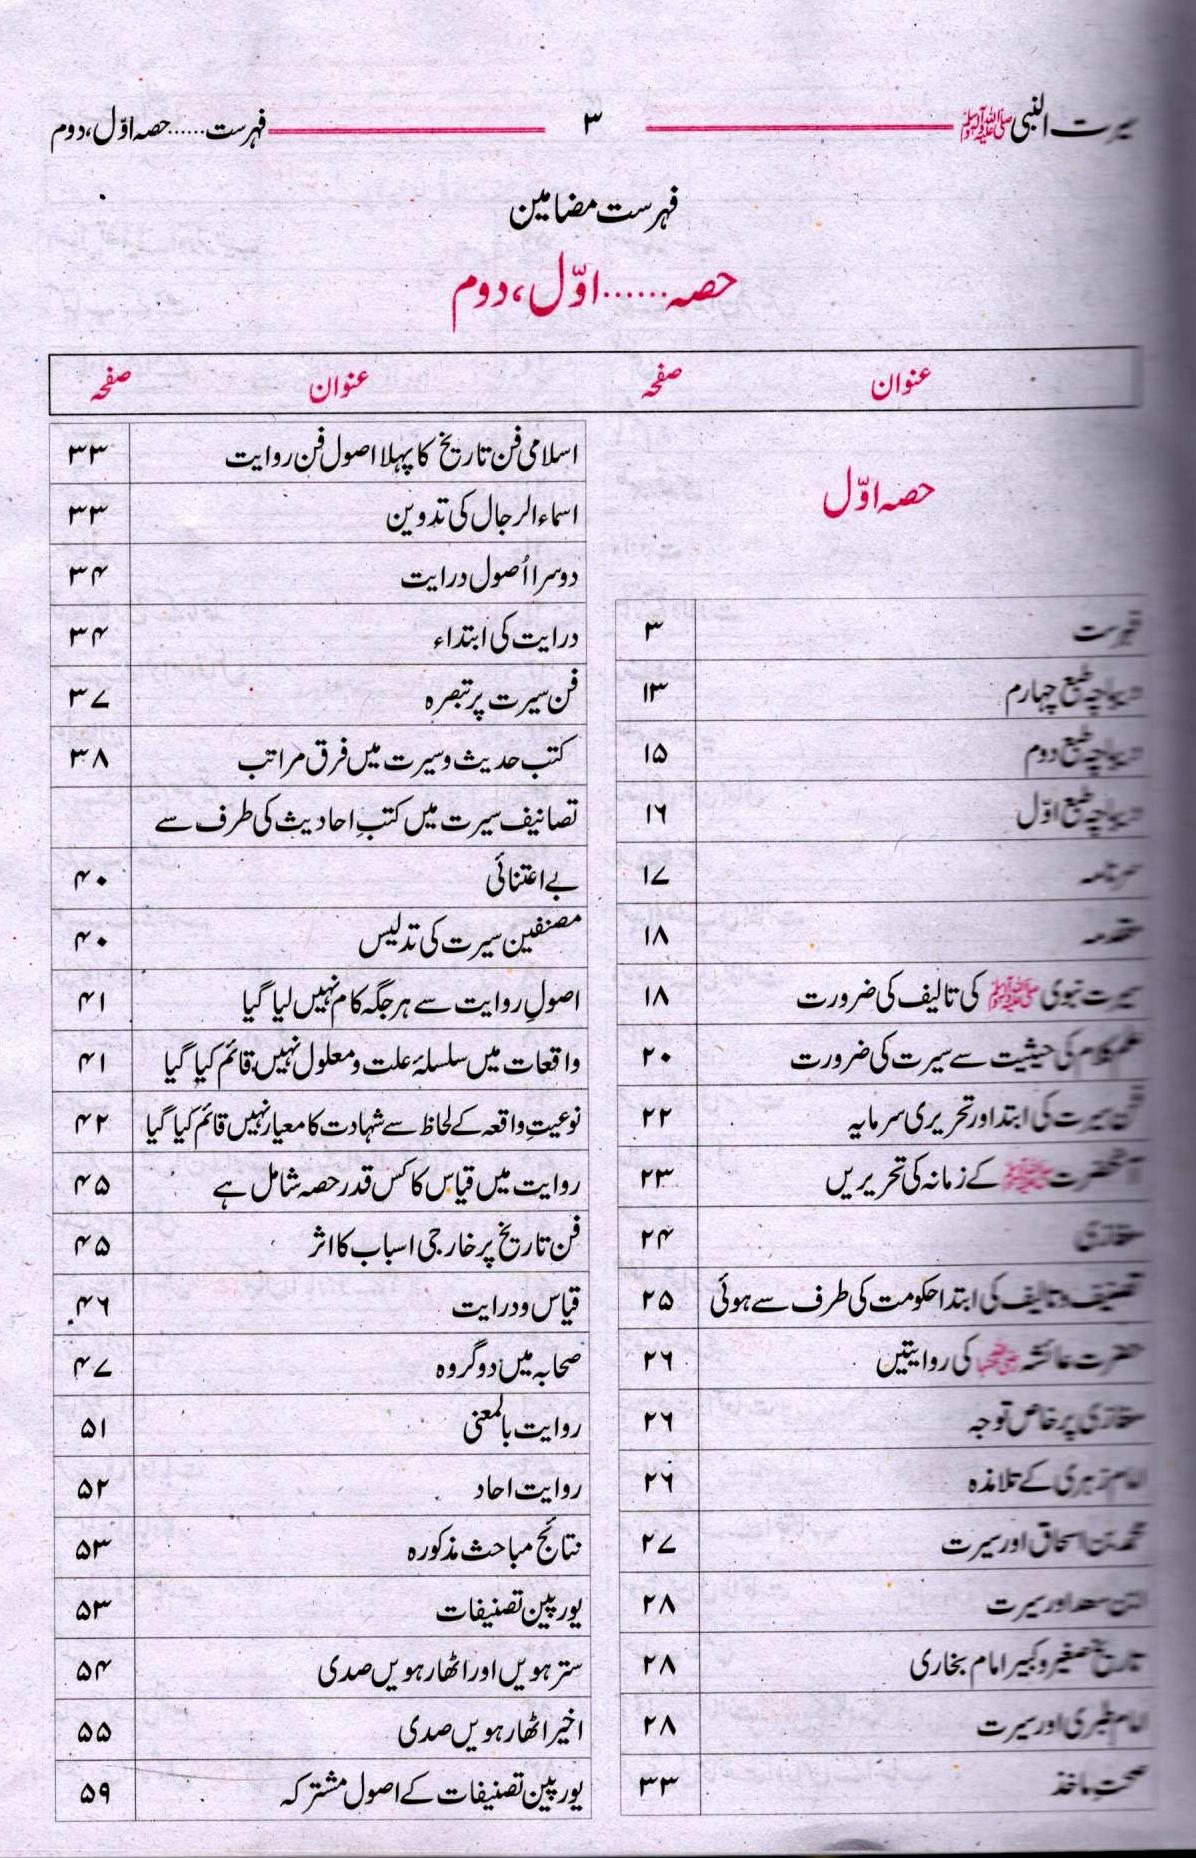 سیرت النبی ﷺ ۳ فہرست......حصہ اوّل، دوم
فہرست مضامین
حصہ......اوّل، دوم
عنوان صفحہ عنوان صفحہ
حصہ اوّل
فہرست ۳
دیباچہ طبع چہارم ۱۳
دیباچہ طبع دوم ۱۵
دیباچہ طبع اوّل ۱۶
سرنامہ ۱۷
مقدمہ ۱۸
سیرت نبوی ﷺ کی تالیف کی ضرورت ۱۸
علم کلام کی حیثیت سے سیرت کی ضرورت ۲۰
فن سیرت کی ابتدا اور تحریری سرمایہ ۲۲
آنحضرت ﷺ کے زمانہ کی تحریریں ۲۳
مغازی ۲۴
تصنیف و تالیف کی ابتدا حکومت کی طرف سے ہوئی ۲۵
حضرت عائشہ رضی اللہ عنہا کی روایتیں ۲۶
مغازی پر خاص توجہ ۲۶
امام زہری کے تلامذہ ۲۶
محمد بن اسحاق اور سیرت ۲۷
ابن سعد اور سیرت ۲۸
تاریخ صغیر و کبیر امام بخاری ۲۸
امام طبری اور سیرت ۲۸
صحت ماخذ ۳۳
اسلامی فن تاریخ کا پہلا اصول فن روایت ۳۳
اسماء الرجال کی تدوین ۳۳
دوسرا اُصول درایت ۳۴
درایت کی ابتداء ۳۴
فن سیرت پر تبصرہ ۳۷
کتب حدیث و سیرت میں فرق مراتب ۳۸
تصانیف سیرت میں کتبِ احادیث کی طرف سے
بے اعتنائی ۴۰
مصنفین سیرت کی تدلیس ۴۰
اصولِ روایت سے ہر جگہ کام نہیں لیا گیا ۴۱
واقعات میں سلسلۂ علت و معلول نہیں قائم کیا گیا ۴۱
نوعیتِ واقعہ کے لحاظ سے شہادت کا معیار نہیں قائم کیا گیا ۴۲
روایت میں قیاس کا کس قدر حصہ شامل ہے ۴۵
فن تاریخ پر خارجی اسباب کا اثر ۴۵
قیاس و درایت ۴۶
صحابہ میں دو گروہ ۴۷
روایت بالمعنی ۵۱
روایت احاد ۵۲
نتائج مباحث مذکورہ ۵۳
یورپین تصنیفات ۵۳
سترہویں اور اٹھارہویں صدی ۵۴
اخیر اٹھارہویں صدی ۵۵
یورپین تصنیفات کے اصول مشترکہ ۵۹